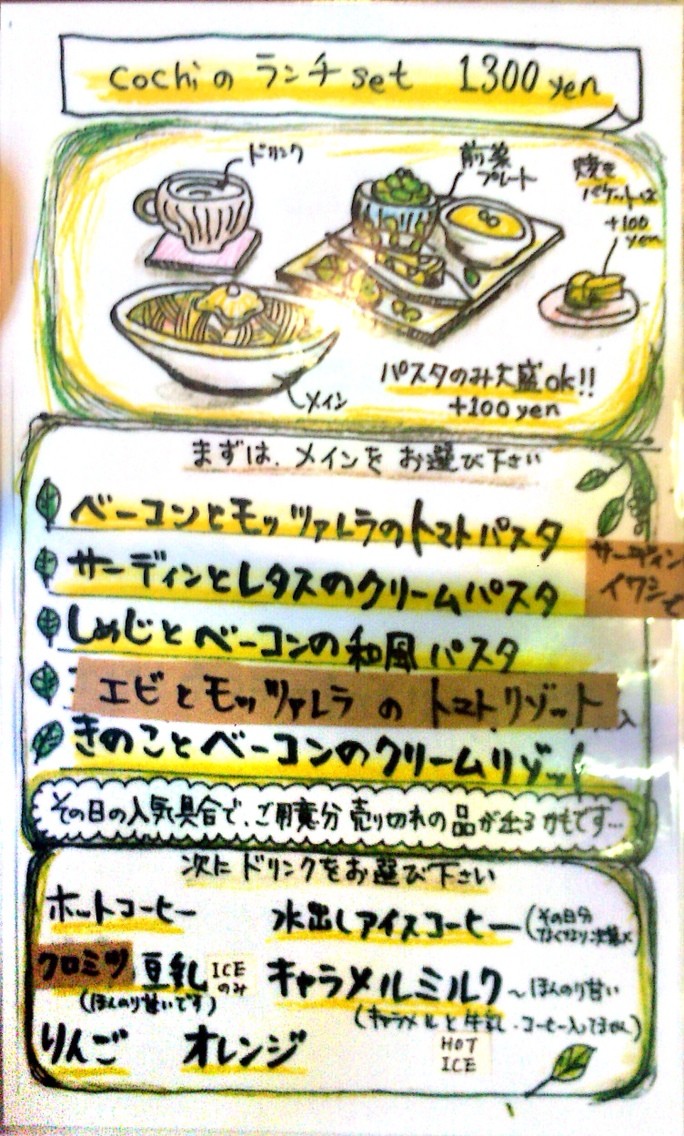 cochiの ランチ set 1300 yen
ドリンク
前菜
プレート
焼き
バケットは
+100
yen
メイン
パスタのみ大盛ok!!
+100yen
まずは、メインを お選び下さい
ベーコンとモッツァレラのトマトパスタ
サーディンとレタスのクリームパスタ
サーディン
イワシ
しめじとベーコンの和風パスタ
エビとモッツァレラ の トマトリゾット
きのことベーコンのクリームリゾット
その日の人気具合で、ご用意分 売り切れの品が出るかもです…
次に ドリンクをお選び下さい
ホットコーヒー
水出しアイスコーヒー(その日分
なくなり次第×)
クロミツ 豆乳 ICE
のみ
(ほんのり甘いです)
キャラメルミルク~ほんのり甘い
(キャラメルと牛乳・コーヒー入ってません)
りんご オレンジ
HOT
ICE